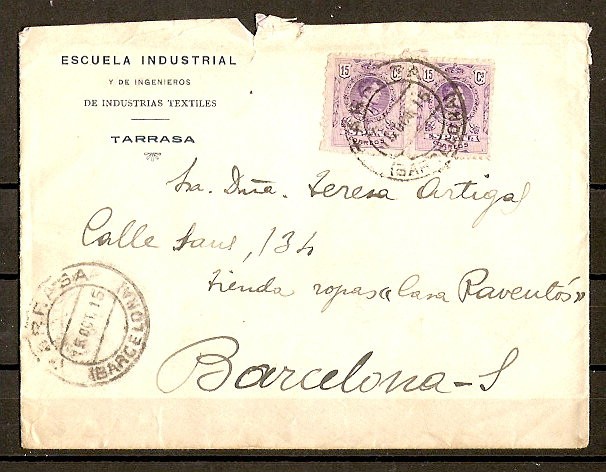 ESCUELA INDUSTRIAL
Y DE INGENIEROS
DE INDUSTRIAS TEXTILES
TARRASA
15 Cs 15 Cs
TARRASA
(BARCELONA)
Sra. Dña. Teresa Artigal
Calle Sans, 134
tienda ropas «Casa Raventós»
Barcelona-S
TARRASA
OCT. 15
(BARCELONA)